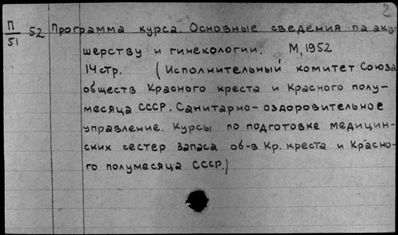 2
П/51 52 Программа курса. Основные сведения па аку-
шерству и гинекологии. М, 1952
14 стр. (Исполнительный комитет Союза
обществ Красного креста и Красного полу-
месяца СССР. Санитарно-оздоровительное
управление. Курсы по подготовке медицин-
ских сестер запаса об-в Кр. креста и Красно-
го полумесяца СССР.)